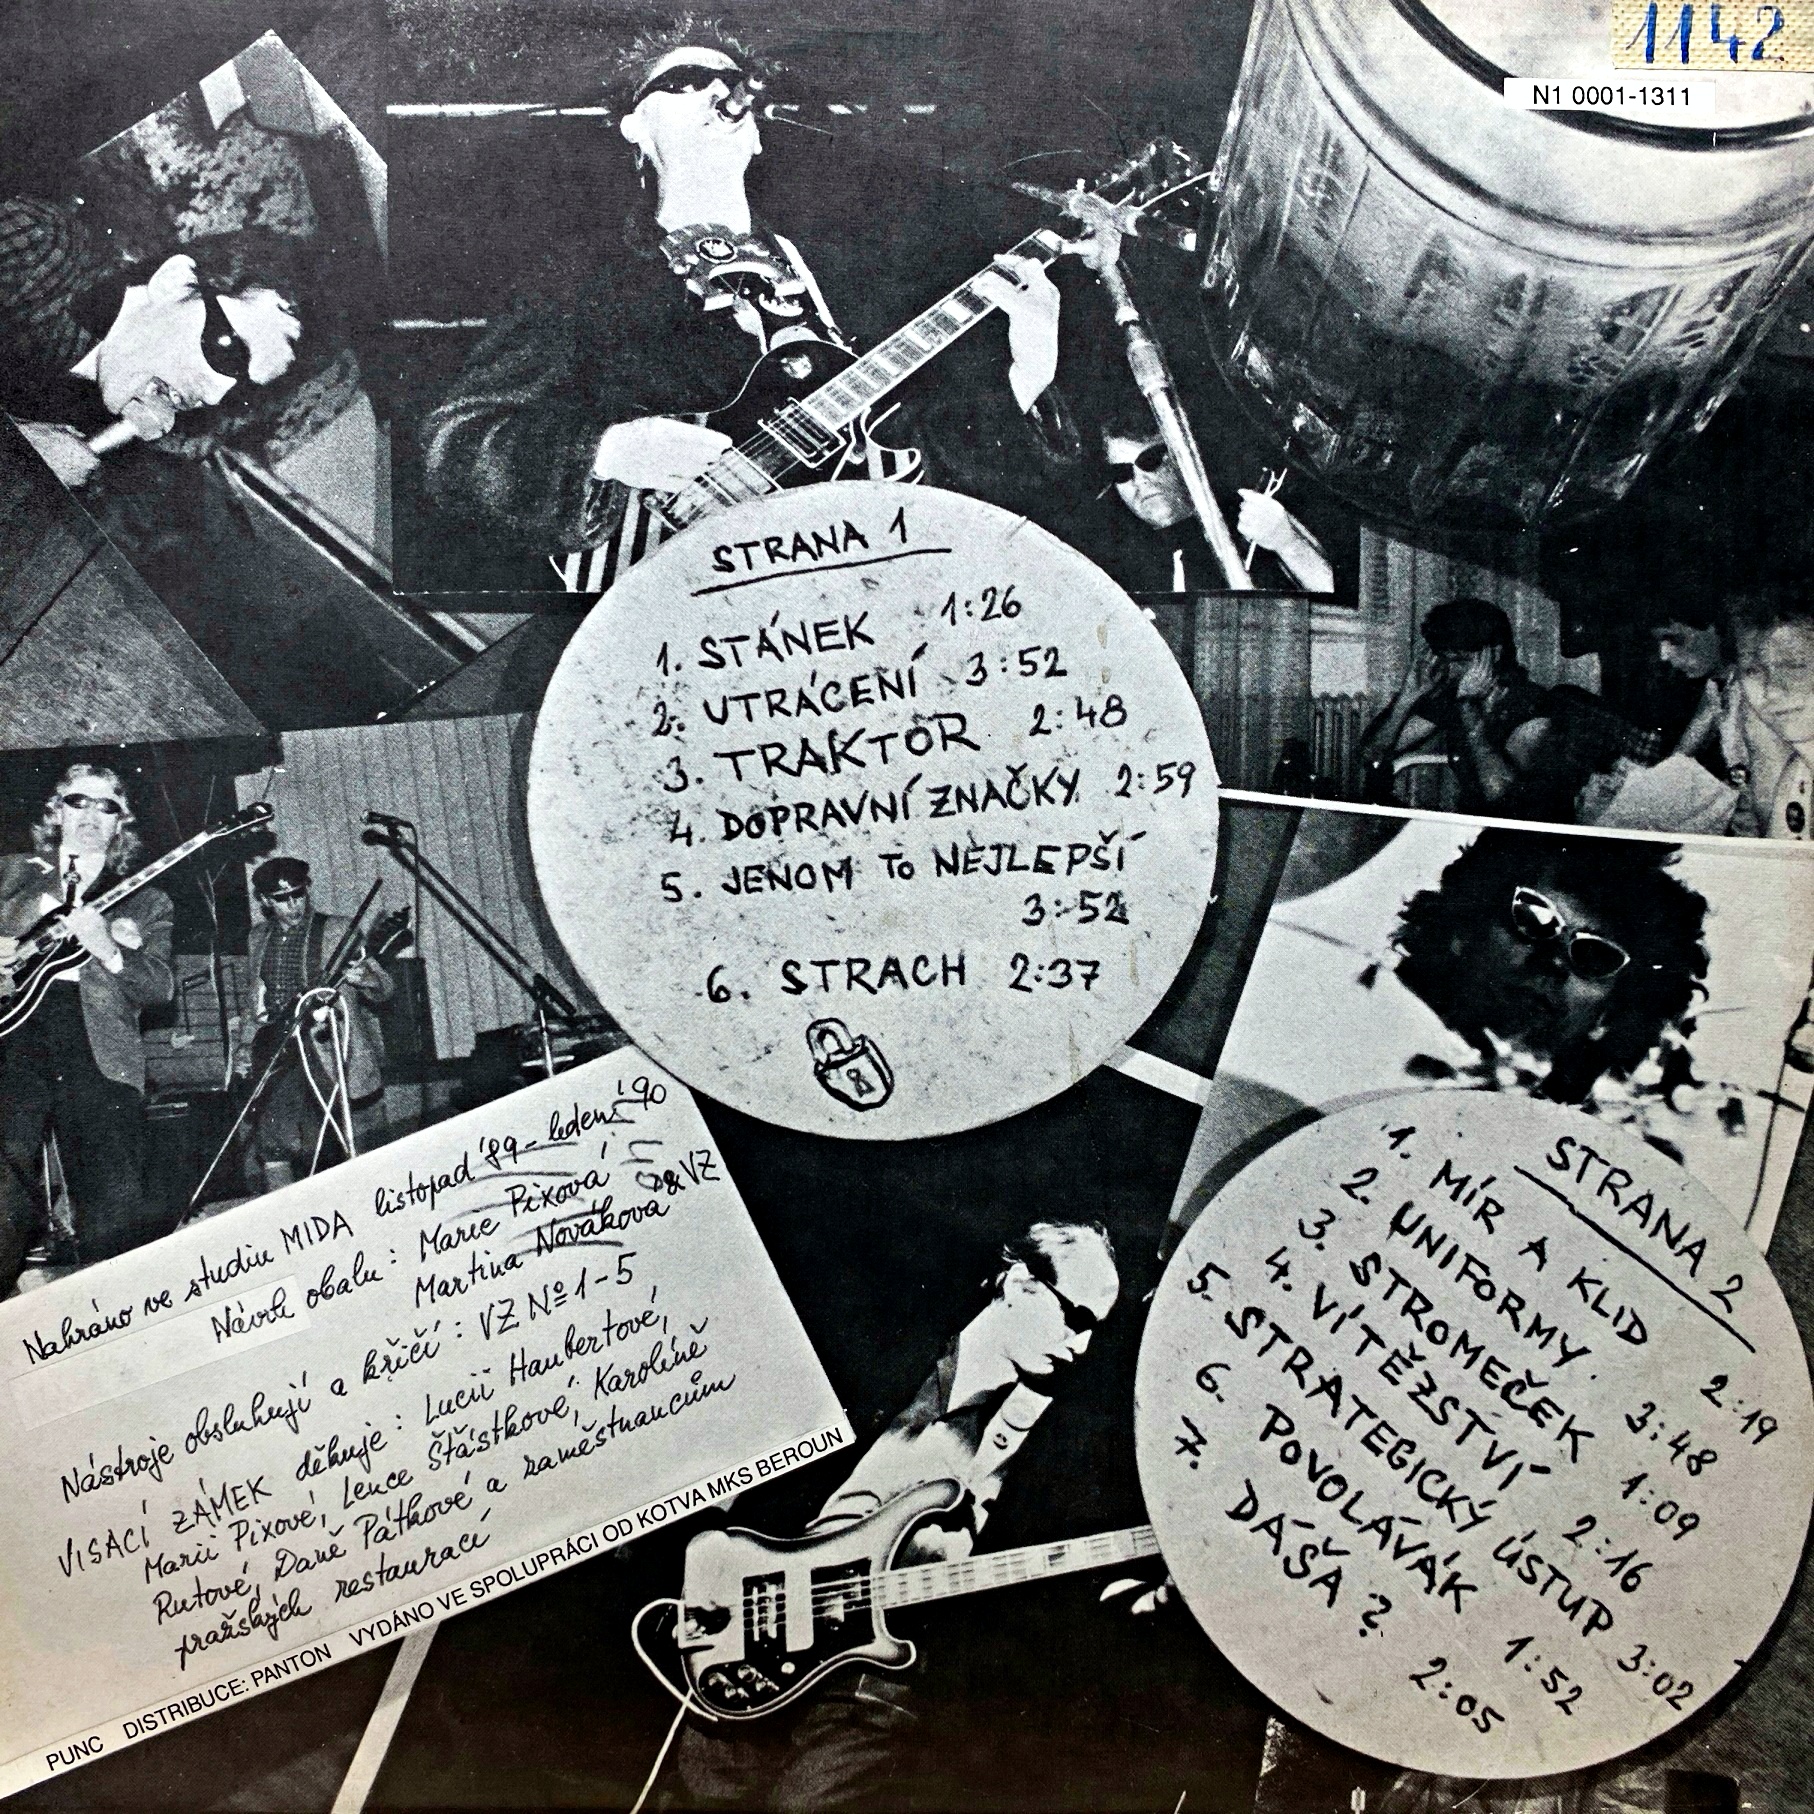 1142
N1 0001-1311
STRANA 1
1. STÁNEK 1:26
2. UTRÁCENÍ 3:52
3. TRAKTOR 2:48
4. DOPRAVNÍ ZNAČKY 2:59
5. JENOM TO NEJLEPŠÍ
3:52
6. STRACH 2:37
Nahráno ve studiu MIDA listopad '89 - leden '90
Návrh obalu: Marie Pixová
Martina Nováková & VZ
Nástroje obsluhují a křičí: VZ Nº 1-5
VISACÍ ZÁMEK děkuje: Lucii Haubertové,
Marii Pixové, Lence Šťástkové, Karolíně
Rutové, Daně Pátkové a zaměstnancům
pražských restaurací
PUNC DISTRIBUCE: PANTON VYDÁNO VE SPOLUPRÁCI OD KOTVA MKS BEROUN
STRANA 2
1. MÍR A KLID 2:19
2. UNIFORMY 3:48
3. STROMEČEK 1:09
4. VÍTĚZSTVÍ 2:16
5. STRATEGICKÝ ÚSTUP 3:02
6. POVOLÁVÁK 1:52
7. DÁŠA? 2:05